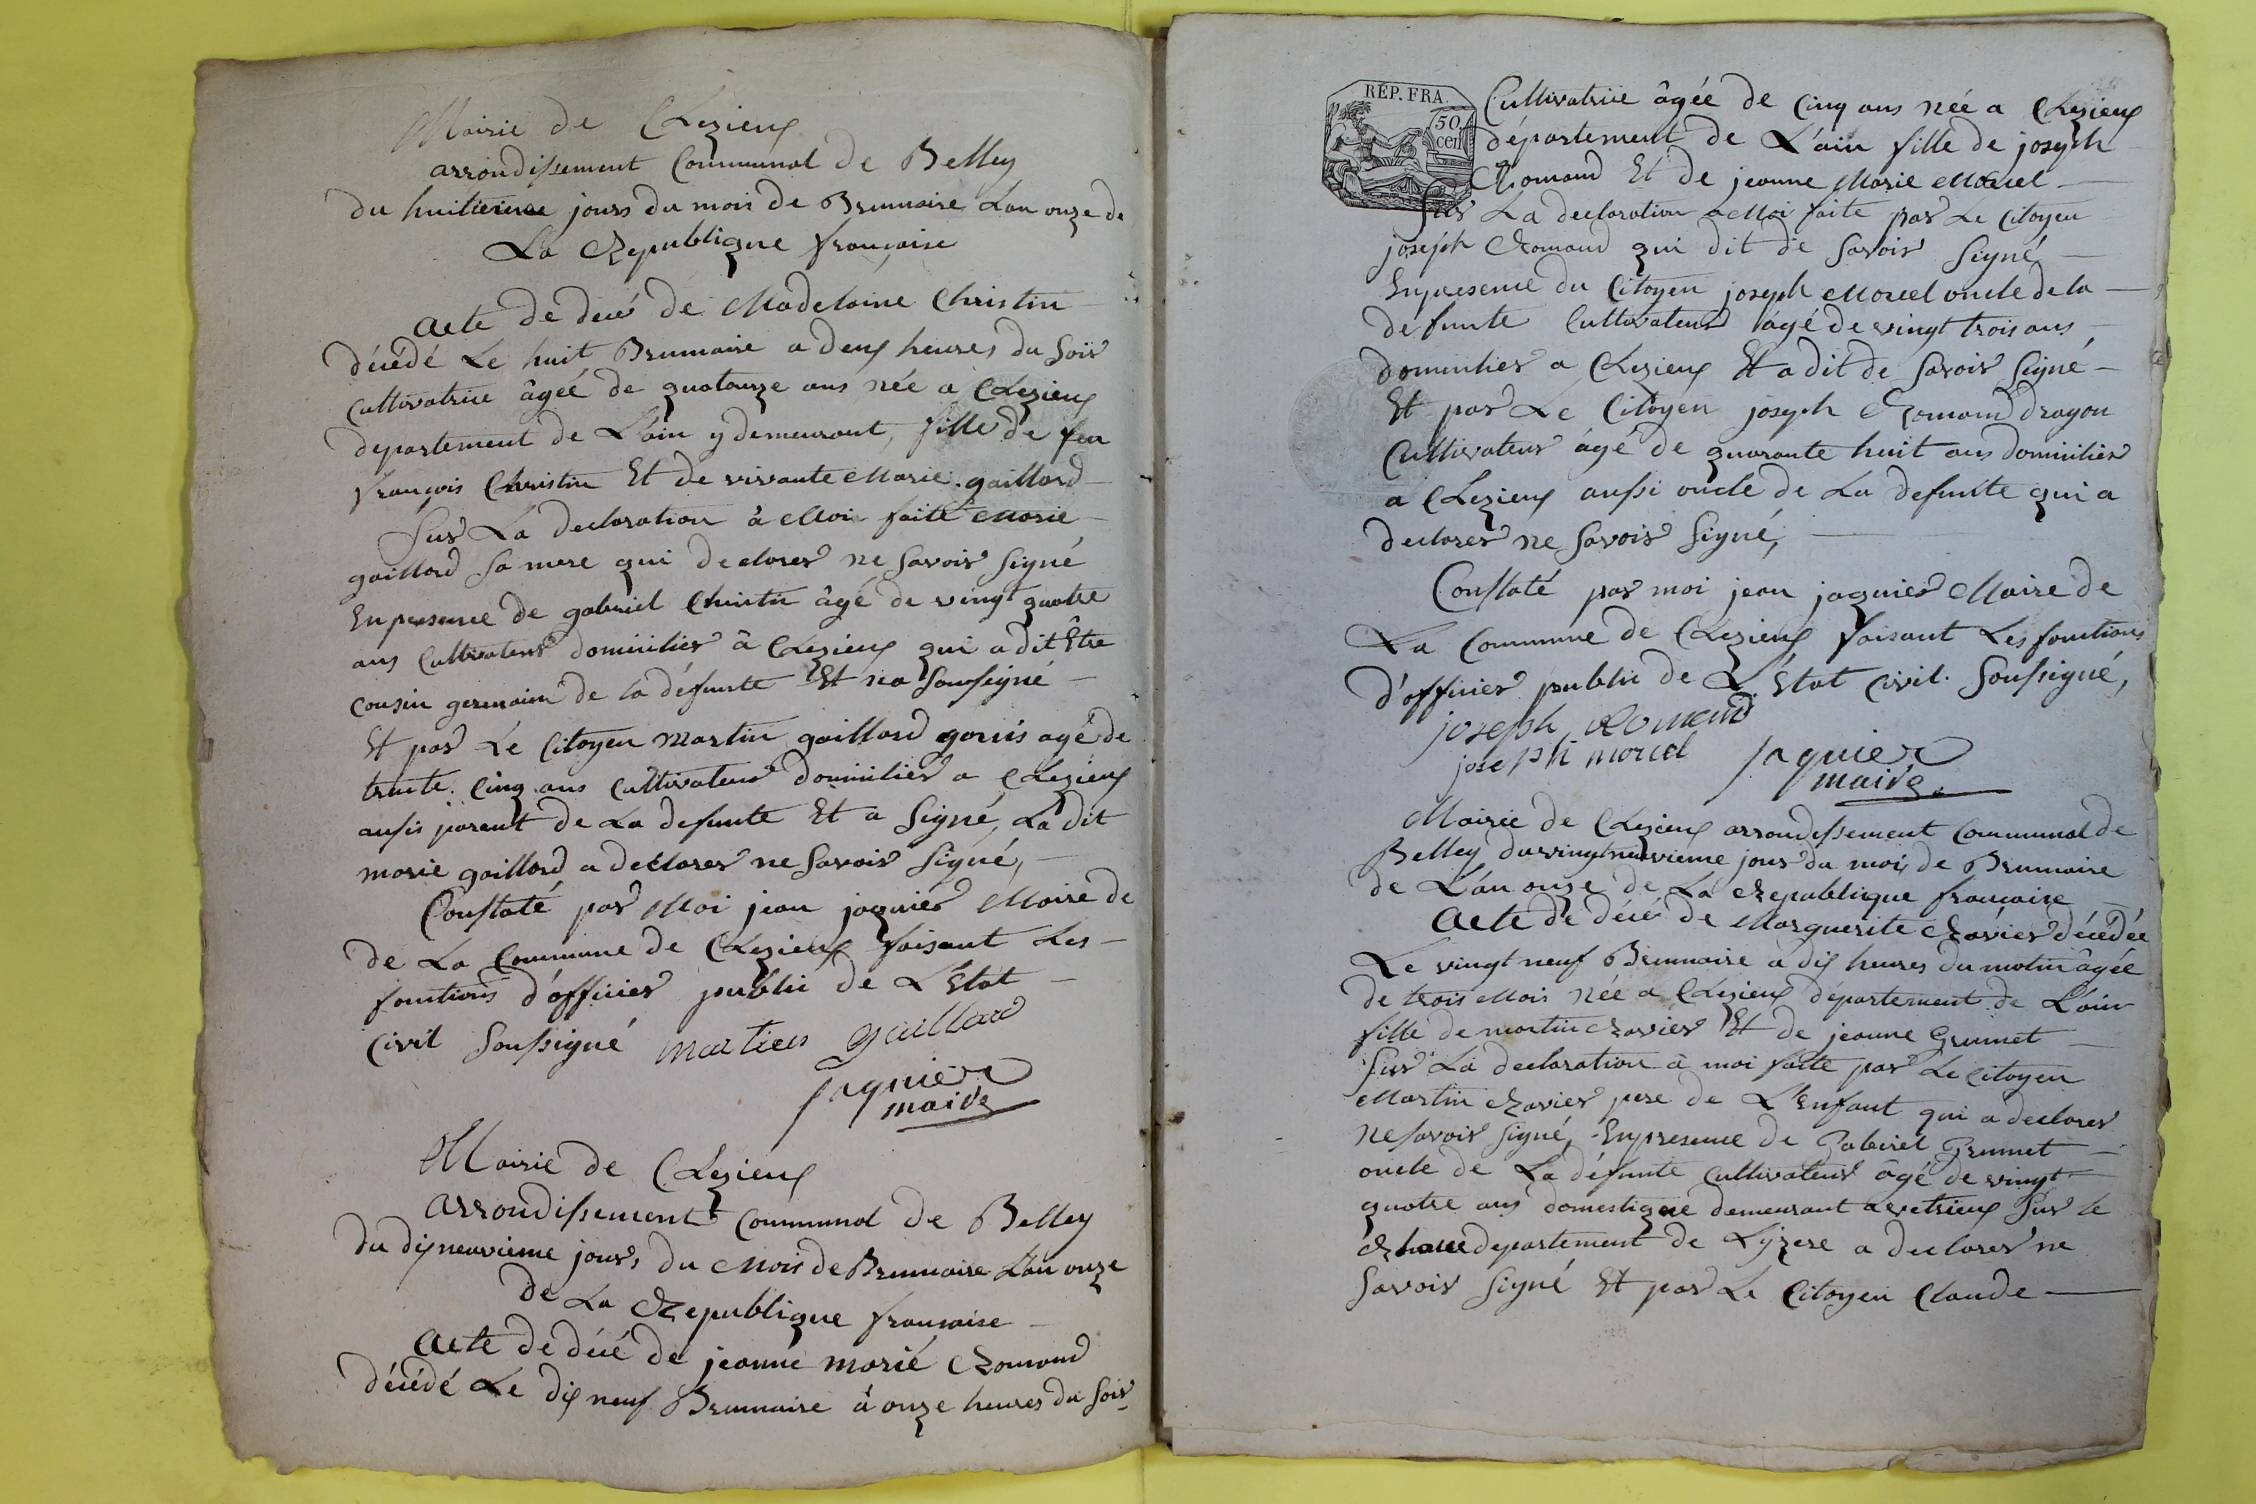 Mairie de Chezieux
arrondissement Communal de Belley
du huitieme jours du mois de Brumaire Lan onze de
La Republique francaise
acte de décé de Madelaine Christin
décédé Le huit Brumaire a deux heures du Soir
Cultivatrice âgéé de quatouze ans née a Chezieux
departement de L'ain y demeurant, fille de feu
françois Christin Et de vivante Marie gaillard
Sur La declaration à Moi faite Marie
gaillard Sa mere qui declarer ne Savoir Signé
En presence de gabriel Christin âgé de vingt quatre
ans Cultivateur domicilier à Chezieux qui a dit Être
cousin germain de la défunte Et na Soussigné
Et par Le Citoyen Martin gaillard agé de
trente. Cinq ans Cultivateur domicilier a Chezieux
aussis parent de La defunte Et a Signé, La dit
marie gaillard a declarer ne Savoir Signé,
Constaté par Moi jean jaquier Maire de
de La Commune de Chezieux faisant Les
fonctions d'officier public de L'Etat
Civil Soussigné martien gaillard
jaquier
maire
Mairie de Chezieux
arrondissement Communal de Belley
du dixneuvieme jours, du Mois de Brumaire Lan onze
de La Republique francaise
acte de décé de jeanne marié Romand
décédé Le dix neuf Brumaire à onze heures du Soir
RÉP. FRA.
50
cen
Cultivatrice âgée de Cinq ans née a Chezieux
département de L'ain fille de joseph
Romand Et de jeanne Marie Morel
Sur La declaration a Moi faite par Le Citoyen
joseph Romand qui dit de Savoir Signé
En presence du Citoyen joseph Morel oncle de la
defunte Cultivateur âgé de vingt trois ans
domicilier a Chezieux Et a dit de Savoir Signé
Et par Le Citoyen joseph Romand dragon
Cultivateur âgé de quarante huit ans domicilier
a Chezieux aussi oncle de La defunte qui a
declarer ne Savoir Signé,
Constaté par moi jean jaquier Maire de
La Commune de Chezieux faisant Les fonctions
d'officier public de L'Etat Civil. Soussigné,
joseph Romand
joseph morel jaquier
maire.
Mairie de Chezieux arrondissement Communal de
Belley du vingtneuvieme jour du mois de Brumaire
de L'an onze de La Republique francaise
acte de décé de Marguerite Ravier décédée
Le vingt neuf Brumaire a dix heures du matin âgée
de trois Mois née a Chezieux département de L'ain
fille de martin Ravier Et de jeanne Grumet
Sur La declaration à moi faite par Le Citoyen
Martin Ravier pere de L'Enfant qui a declarer
ne Savoir Signé, En presence de Gabriel Grumet
oncle de La défunte Cultivateur âgé de vingt
quatre ans domestique demeurant a vetrieux Sur le
Rhone departement de Lyzere a declarer ne
Savoir Signé Et par Le Citoyen Claude